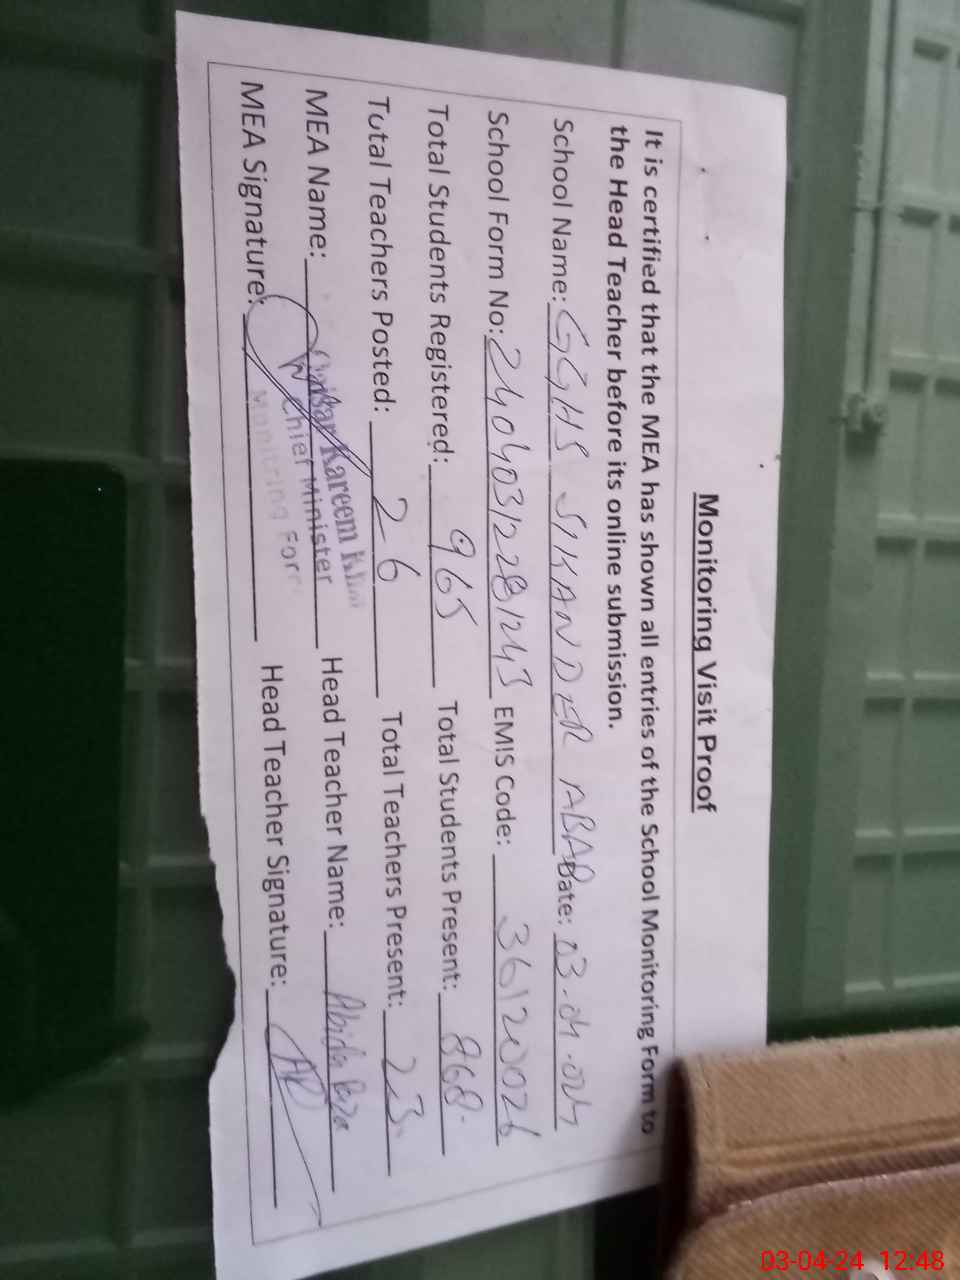 Monitoring Visit Proof
It is certified that the MEA has shown all entries of the School Monitoring Form to
the Head Teacher before its online submission.
School Name: GGHS SIKANDER ABAD Date: 03-04-024
School Form No: 240403122812143 EMIS Code: 36120026
Total Students Registered: 965 Total Students Present: 868
Total Teachers Posted: 26 Total Teachers Present: 23
MEA Name: Kareem Head Teacher Name: Abida
Chief Minister
MEA Signature: Head Teacher Signature:
Monitring Force
03-04-24 12:48